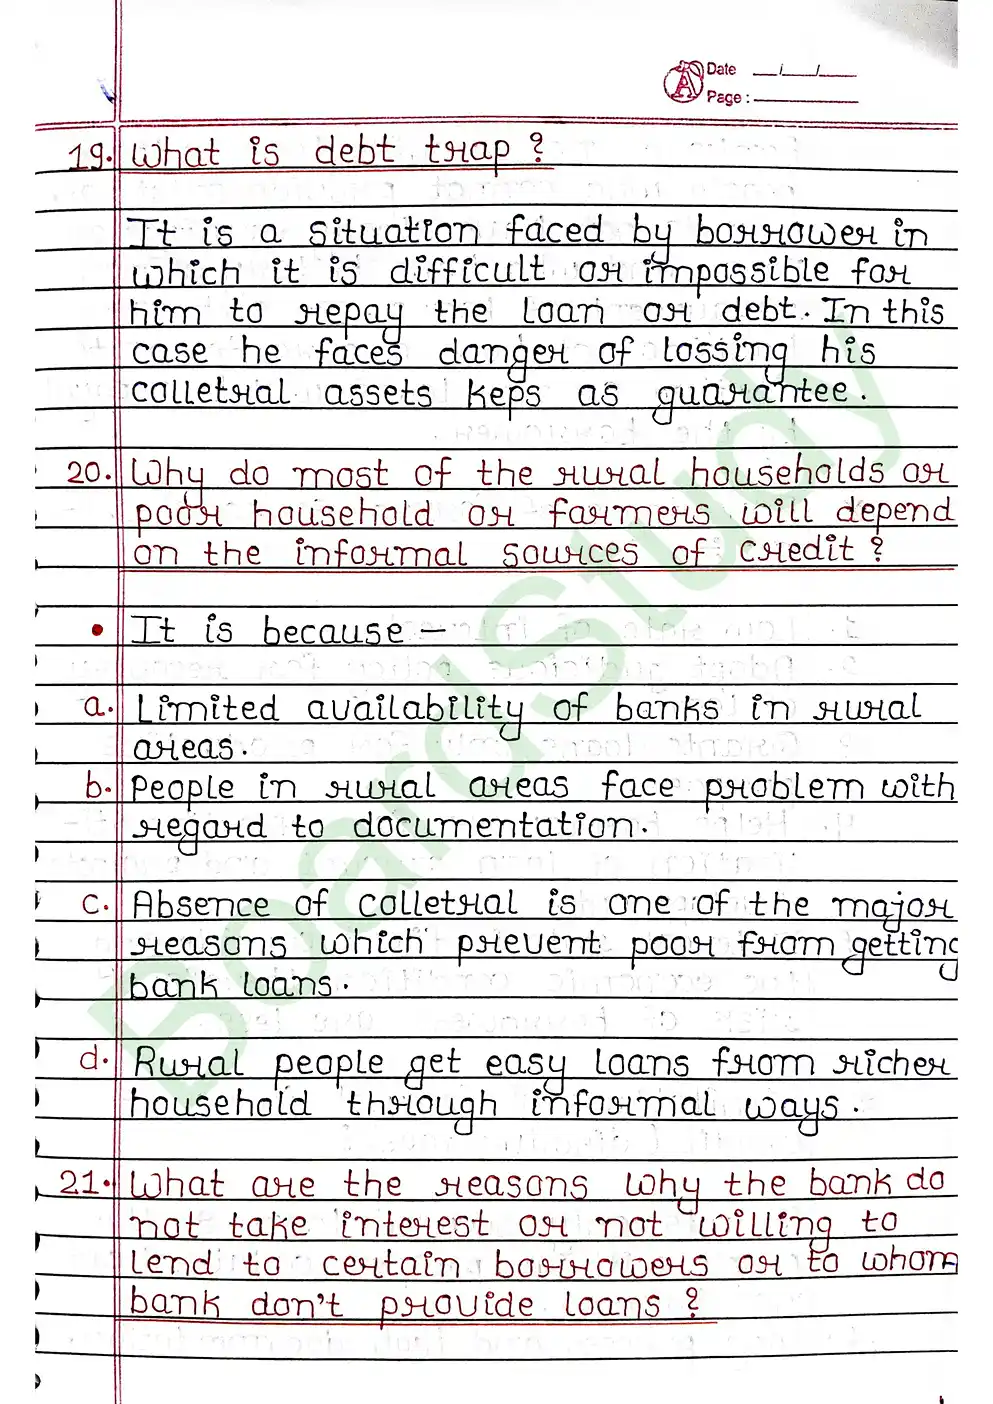 Date __/__/__
Page :
19. What is debt trap ?
It is a situation faced by borrower in
which it is difficult or impossible for
him to repay the loan or debt. In this
case he faces danger of lossing his
colletral assets keps as guarantee.
20. Why do most of the rural households or
poor household or farmers will depend
on the informal sources of credit ?
• It is because –
a. Limited availability of banks in rural
areas.
b. People in rural areas face problem with
regard to documentation.
c. Absence of colletral is one of the major
reasons which prevent poor from getting
bank loans.
d. Rural people get easy loans from richer
household through informal ways.
21. What are the reasons why the bank do
not take interest or not willing to
lend to certain borrowers or to whom
bank don't provide loans ?
BoardStudy